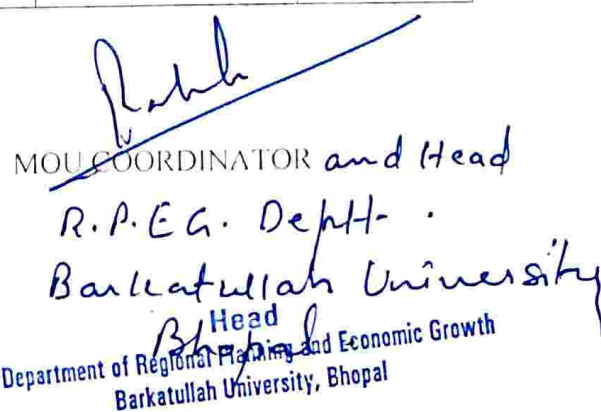 MOU COORDINATOR and Head
R.P.E.G. Deptt.
Barkatullah University
Bhopal.
Head
Department of Regional Planning and Economic Growth
Barkatullah University, Bhopal